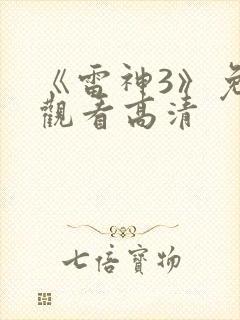 《雷神3》免
觀看高清
七倍寶物